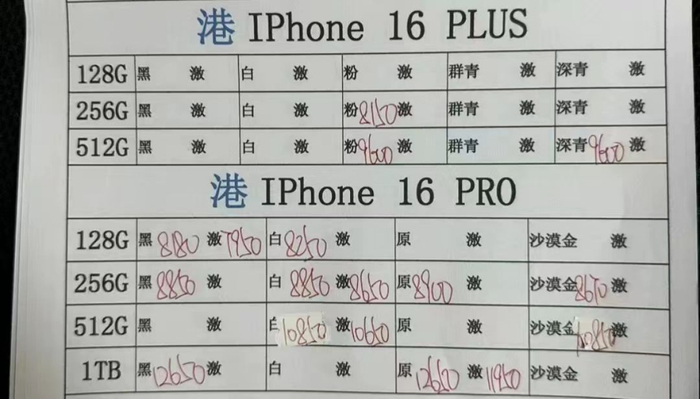 港 IPhone 16 PLUS
128G 黑 激 白 激 粉 激 群青 激 深青 激
256G 黑 激 白 激 粉8150激 群青 激 深青 激
512G 黑 激 白 激 粉9600激 群青 激 深青9600激
港 IPhone 16 PRO
128G 黑8180激7950 白8250激 原 激 沙漠金 激
256G 黑8850激 白8850激8650 原8900激 沙漠金8670激
512G 黑 激 白10850激10650 原 激 沙漠金10850激
1TB 黑12650激 白 激 原12650激11950 沙漠金 激